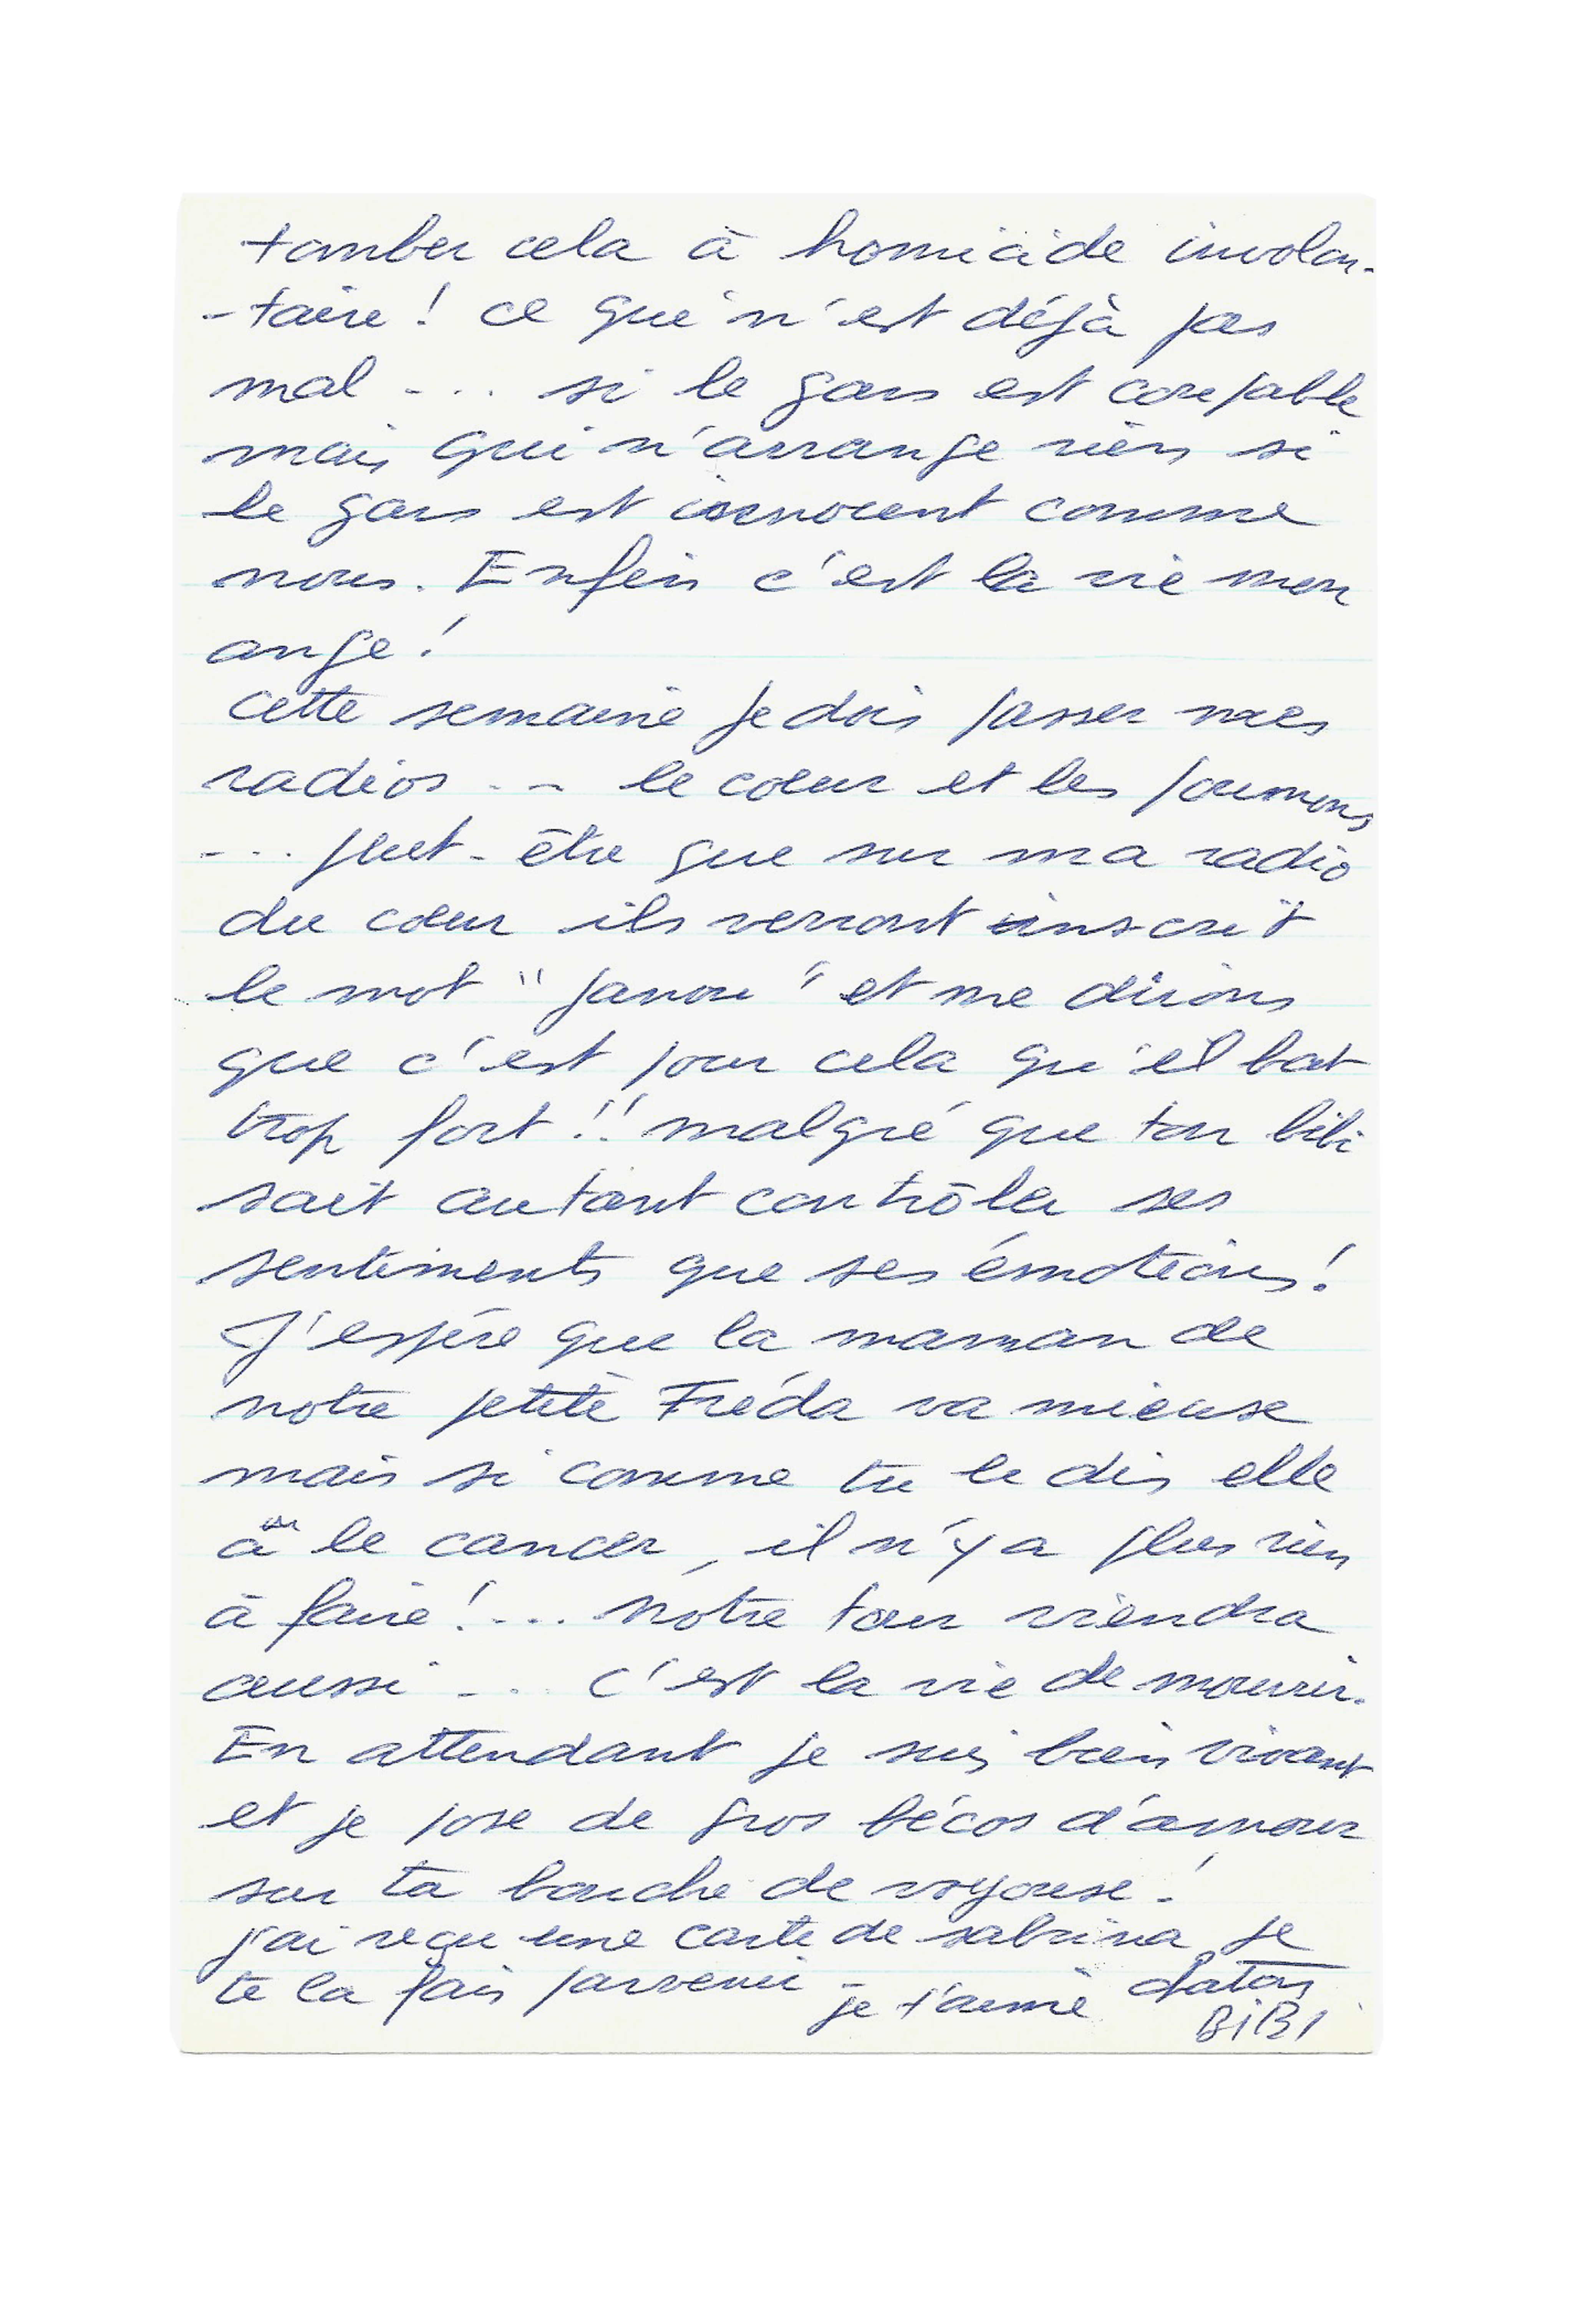 tomber cela à homicide involon-
-taire ! ce qui n'est déjà pas
mal ... si le gars est coupable
mais qui n'arrange rien si
le gars est innocent comme
nous. Enfin c'est la vie mon
ange !
cette semaine je dois passer mes
radios ... le coeur et les poumons
... peut-être que sur ma radio
du coeur ils verront inscrit
le mot "janou" et me dirons
que c'est pour cela qu'il bat
trop fort !! malgré que ton bibi
sait autant contrôler ses
sentiments que ses émotions !
J'espère que la maman de
notre petite Fréda va mieuse
mais si comme tu le dis elle
a le cancer, il n'y a plus rien
à faire ! ... notre tour viendra
aussi ... c'est la vie de mourrir.
En attendant je suis bien vivant
et je pose de gros bécos d'amour
sur ta bouche de voyouse !
j'ai reçu une carte de sabrina je
te la fais parvenir - je t'aime
BiBi